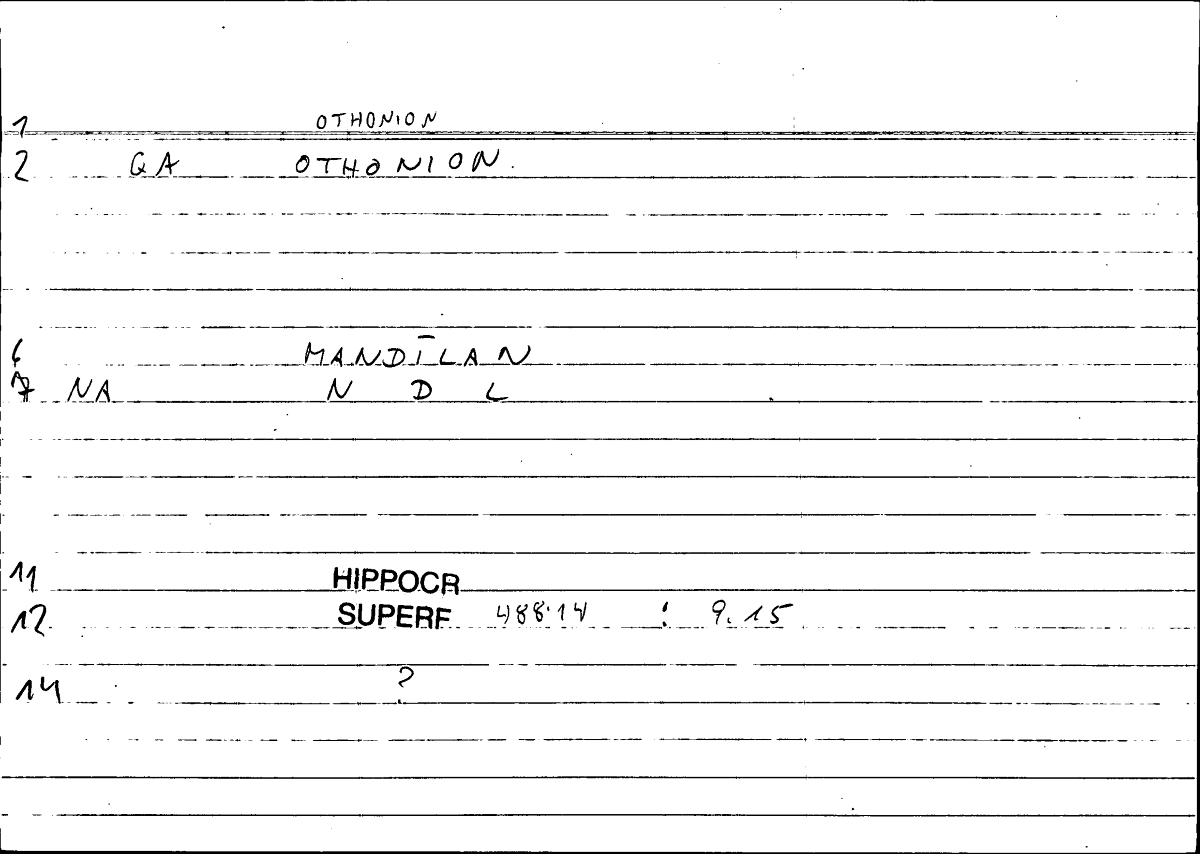 1 OTHONION
2 GA OTHONION.
6 MANDĪLAN
7 NA N D L
11 HIPPOCR
12 SUPERF 488.14 : 9.15
14 ?